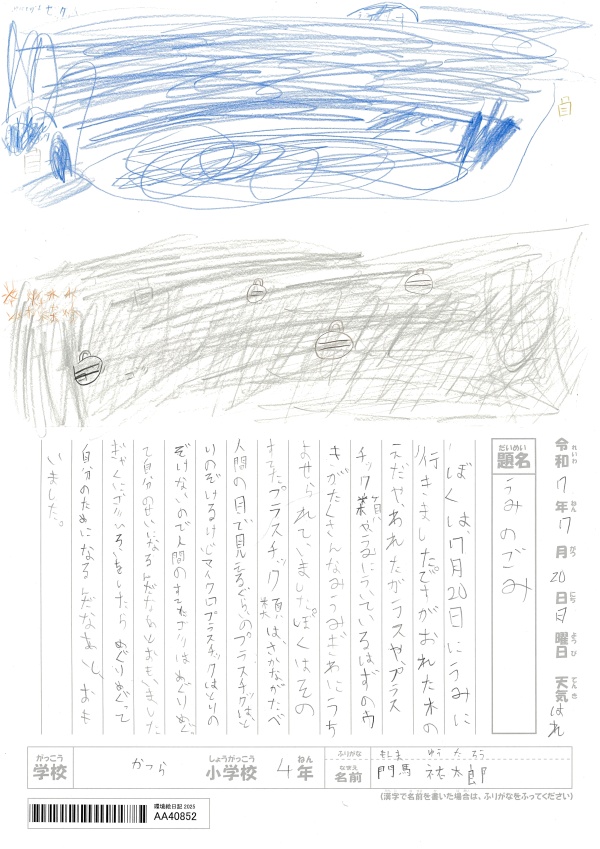 令和7年7月20日日曜日 天気はれ
れいわ ねん がつ にち ようび てんき
だいめい
題名
うみのごみ
ぼくは、7月20日にうみに
行きました。でさがおれた木の
えだやあわれたガラスや、プラス
チック
やうみにういているはずのウ
きがたくさんなみうみぎわにうち
よせられていました。ぼくはその
すてたプラスチック類は、さかながたべ
人間の目で見えるぐらいのプラスチックはと
りのぞけるけどマイクロプラスチックはとりの
ぞけないので人間のすてたゴミはめぐりめぐっ
て自分のせいになるんだなあとおもいました
ぎゃくにゴミひろいをしたらめぐりめぐって
自分のためになるんだなあと、おも
いました。
がっこう
学校
かつら
しょうがっこう
小学校
4
ねん
年
ふりがな
もんま ゆうたろう
なまえ
名前
門馬 祐太郎
(漢字で名前を書いた場合は、ふりがなをふってください)
環境絵日記 2025
AA40852